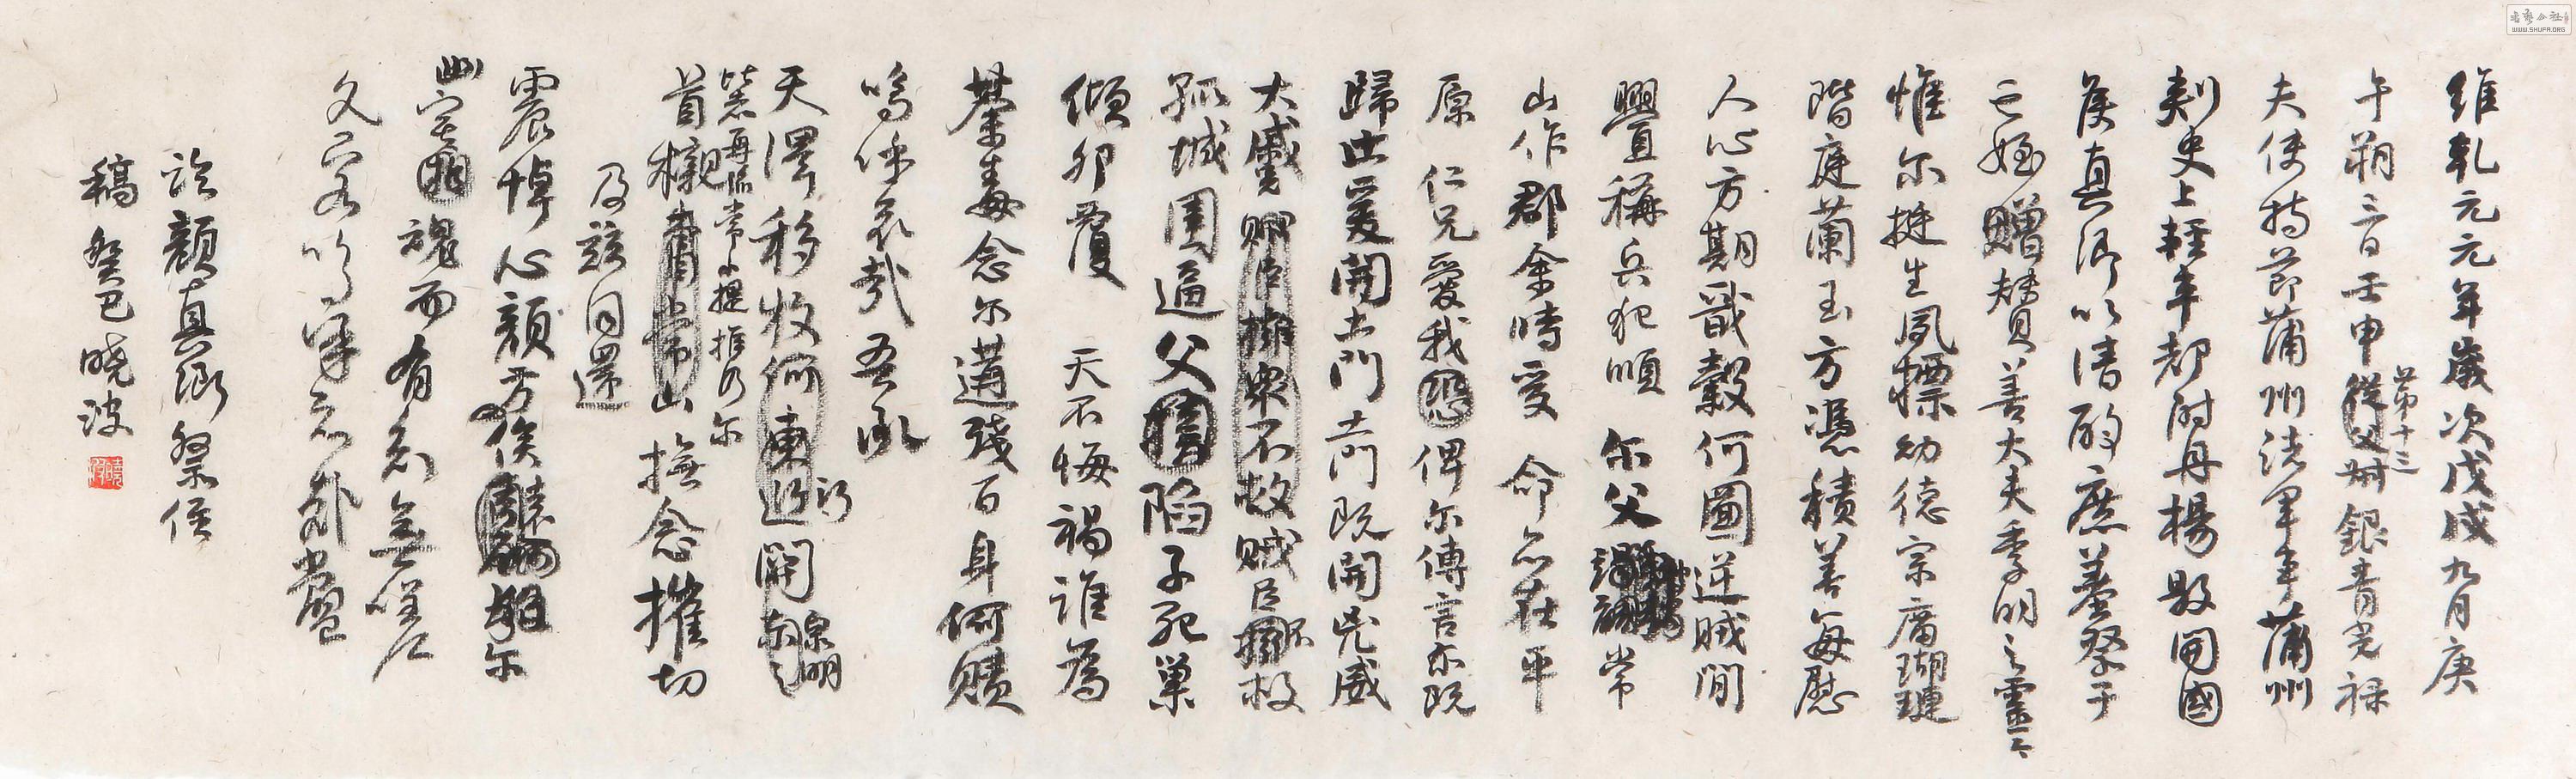 維乾元元年歲次戊戌九月庚
午朔三日壬申從父叔銀青光祿
第十三
夫使持節蒲州諸軍事蒲州
刺史上輕車都尉丹楊縣開國
侯真卿以清酌庶羞祭于
亡姪贈贊善大夫季明之靈曰
惟爾挺生夙標幼德宗廟瑚璉
階庭蘭玉方憑積善每慰
人心方期戩穀何圖逆賊閒
釁稱兵犯順 爾父竭誠常
山作郡余時受 命亦在平
原 仁兄愛我恐俾爾傳言爾既
歸止爰開土門土門既開兇威
大蹙賊臣擁眾不救賊臣不救
孤城圍逼父陷子死巢
傾卵覆 天不悔禍誰為
荼毒念爾遘殘百身何贖
嗚呼哀哉吾承
天澤移牧河東近開
泉明
比者再陷常山提攜爾
首櫬常山撫念摧切
及茲同還
震悼心顏方俟遠爾
幽宅魂而有知無嗟
久客嗚呼哀哉尚饗
臨顏真卿祭侄
稿 癸巳曉波
書艺公社
WWW.SHUFA.ORG